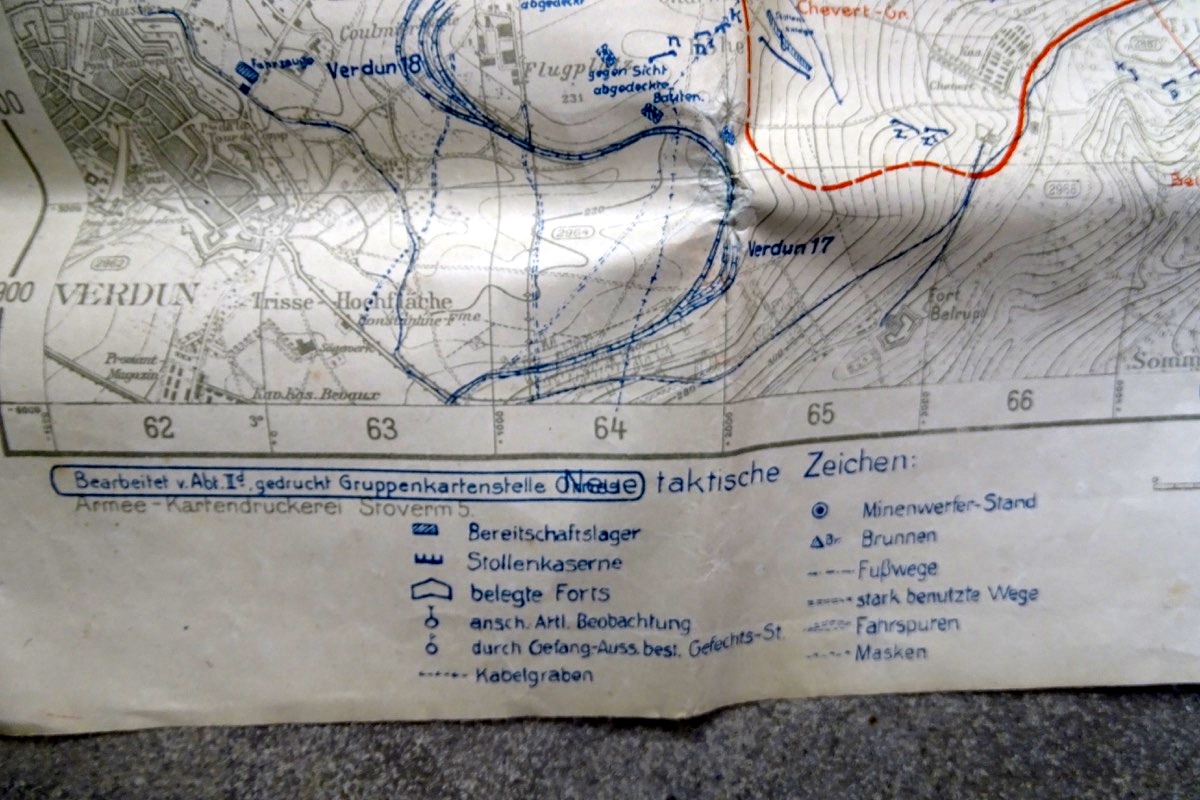 abgedeckt
Chevert-Gr.
Fahrzeuge
Verdun 18
Flugplatz
gegen Sicht
abgedeckte
Bauten.
231
Chevert
2966
220
2964
Verdun 17
2962
900
VERDUN
Trisse-Hochfläche
Fort
Belrupt
Proviant
Magazin
Kav. Kas. Bevaux
62
63
64
65
66
Bearbeitet v. Abt. Iᵈ. gedruckt Gruppenkartenstelle
Armee-Kartendruckerei Stoverm 5.
Neue taktische Zeichen:
Bereitschaftslager
Stollenkaserne
belegte Forts
ansch. Artl. Beobachtung
durch Gefang-Auss. best. Gefechts-St.
Kabelgraben
Minenwerfer-Stand
Br. Brunnen
Fußwege
stark benutzte Wege
Fahrspuren
Masken